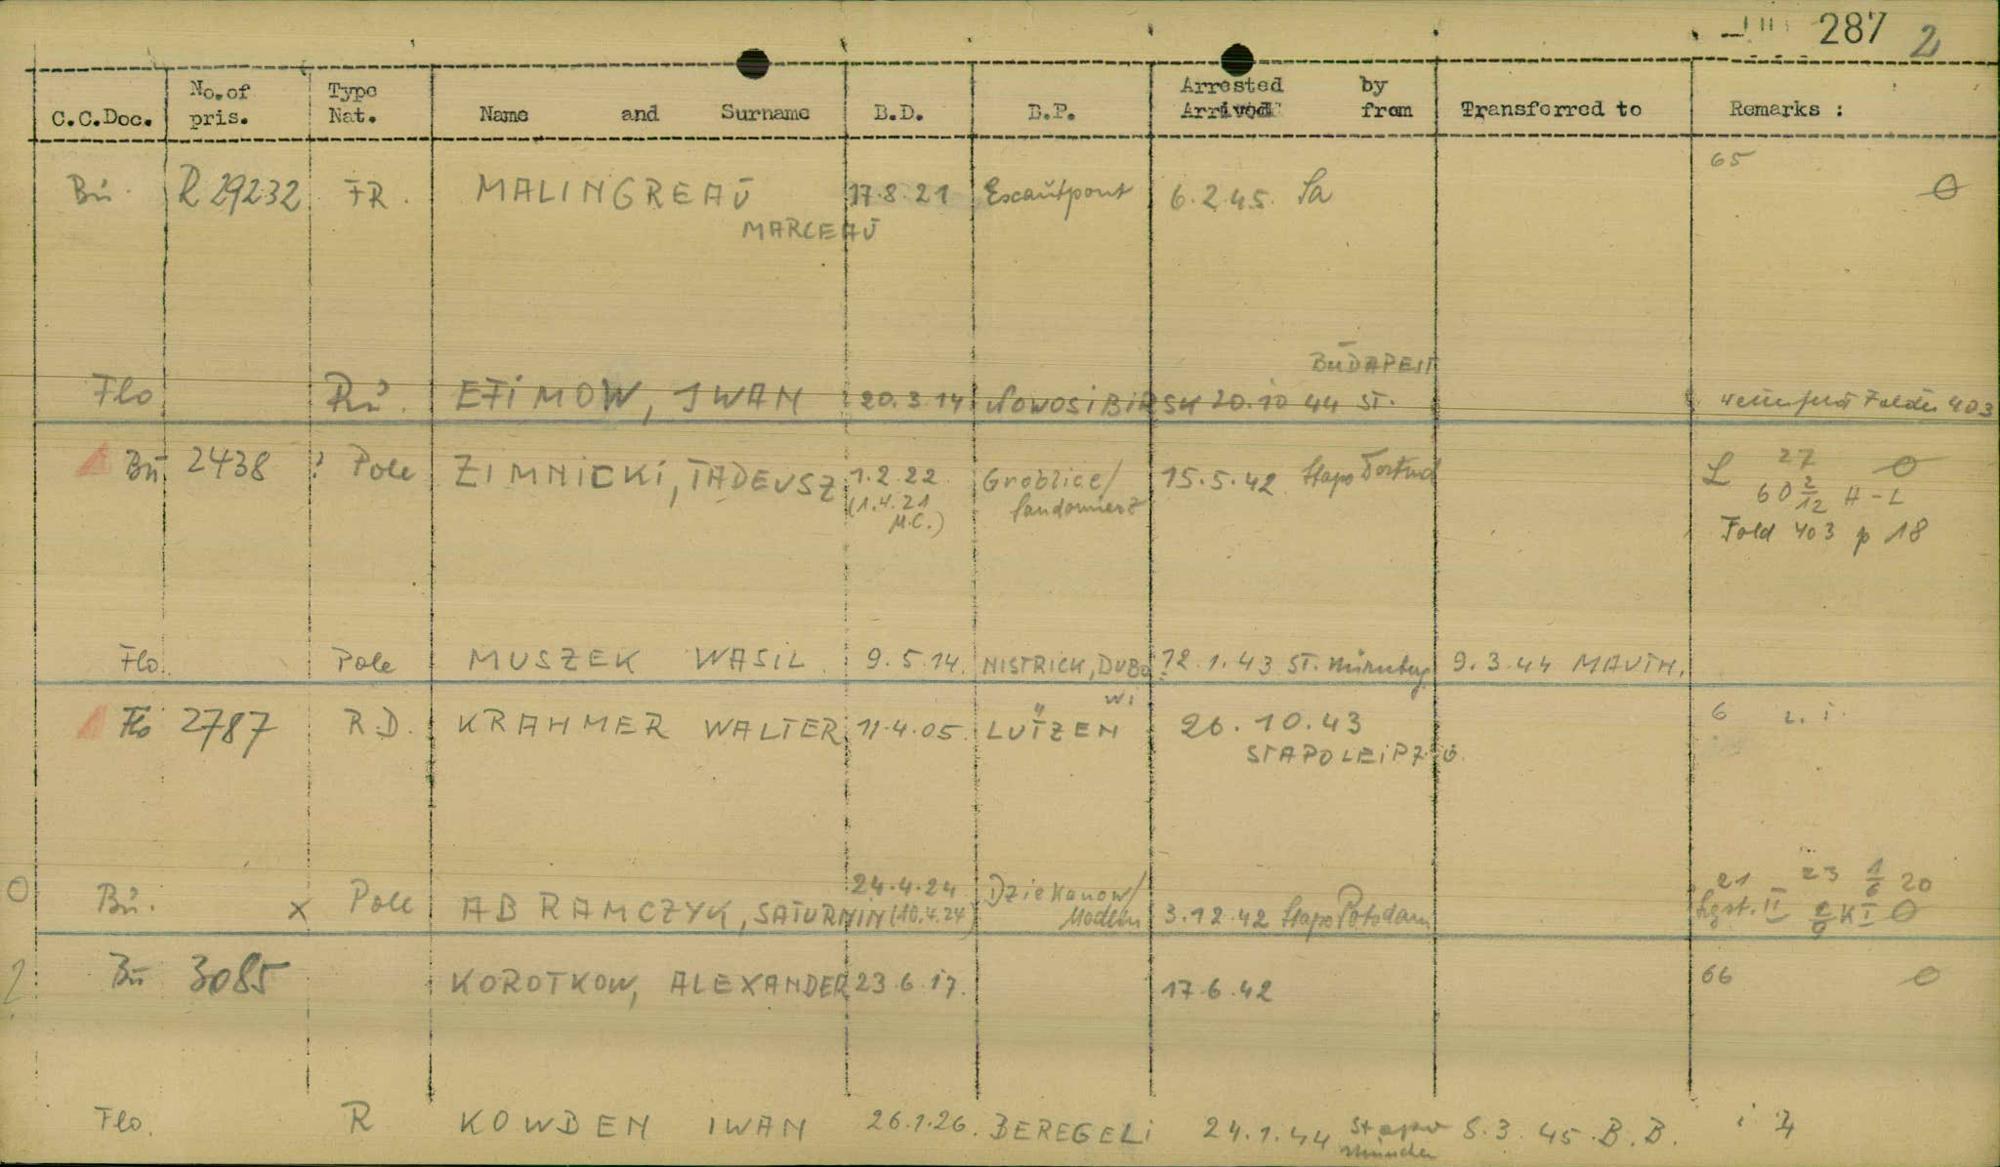 287 2
C.C.Doc. No. of pris. Type Nat. Name and Surname B.D. B.P. Arrested by Arrived from Transferred to Remarks :
65
Bu. R 29232 FR. MALINGREAU 17.8.21 Escautpont 6.2.45. Sa
MARCEAU
BUDAPEST
Flo Ru. EFIMOW, IWAN 20.3.14 NOWOSIBIRSK 20.10 44 ST. Folder 403
Bu 2438 ? Pole ZIMNICKI, TADEUSZ 1.2.22 Groblice/ 15.5.42 Stapo Dortmd L 27
(1.4.21 Sandomierz 60 2/12 H-L
M.C.) Fold 403 p 18
Flo. Pole MUSZEK WASIL 9.5.14. NISTRICK, DUBO 12.1.43 ST. Nürnberg 9.3.44 MAUTH.
WI
Flo 2787 R.D. KRAHMER WALTER 11.4.05. LÜTZEN 26.10.43 6 L. i.
STAPO LEIPZIG.
24.4.24 Dziekanow/ 21 23 1/6 20
O Bu. X Pole ABRAMCZYK, SATURNIN (10.4.24) Modlin 3.12.42 Stapo Potsdam II K I
? Bu 3085 KOROTKOW, ALEXANDER 23.6.17. 17.6.42 66
Flo. R KOWDEN IWAN 26.1.26. BEREGELI 24.1.44 Stapo München 8.3.45. B.B.